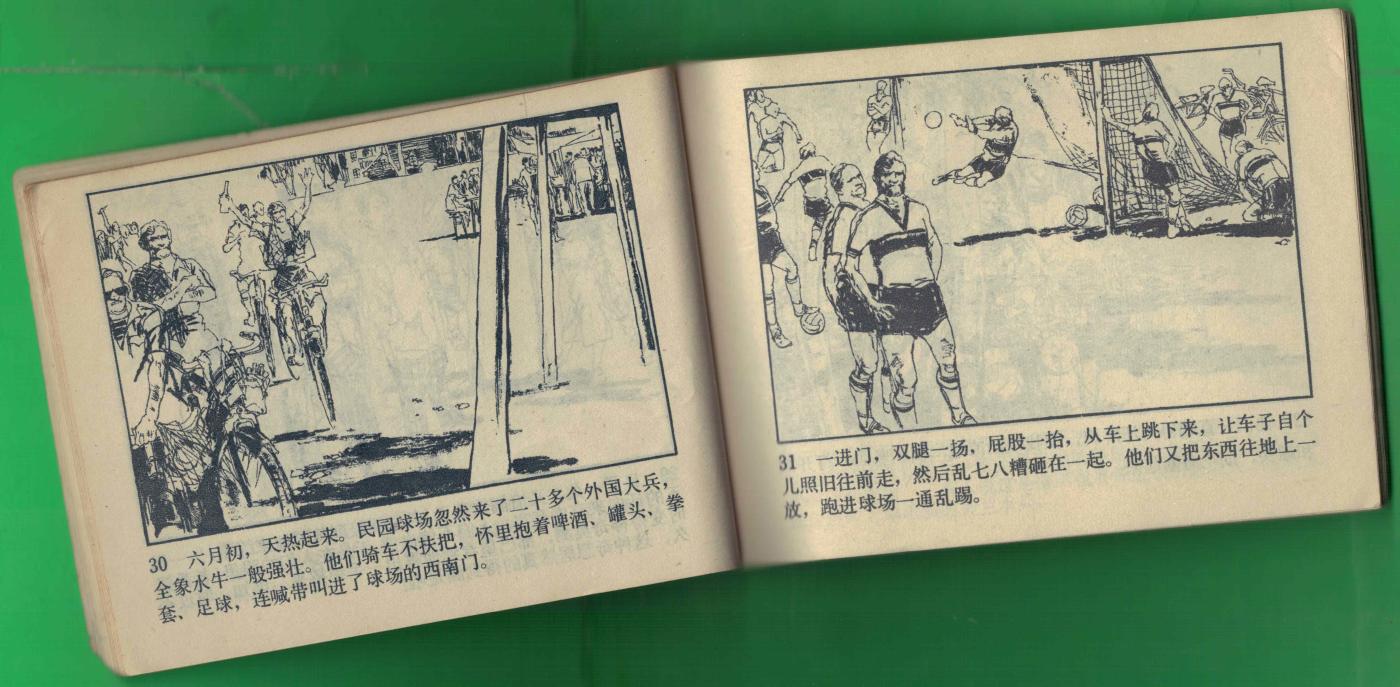 30 六月初，天热起来。民园球场忽然来了二十多个外国大兵，
全象水牛一般强壮。他们骑车不扶把，怀里抱着啤酒、罐头、拳
套、足球，连喊带叫进了球场的西南门。
31 一进门，双腿一扬，屁股一抬，从车上跳下来，让车子自个
儿照旧往前走，然后乱七八糟砸在一起。他们又把东西往地上一
放，跑进球场一通乱踢。